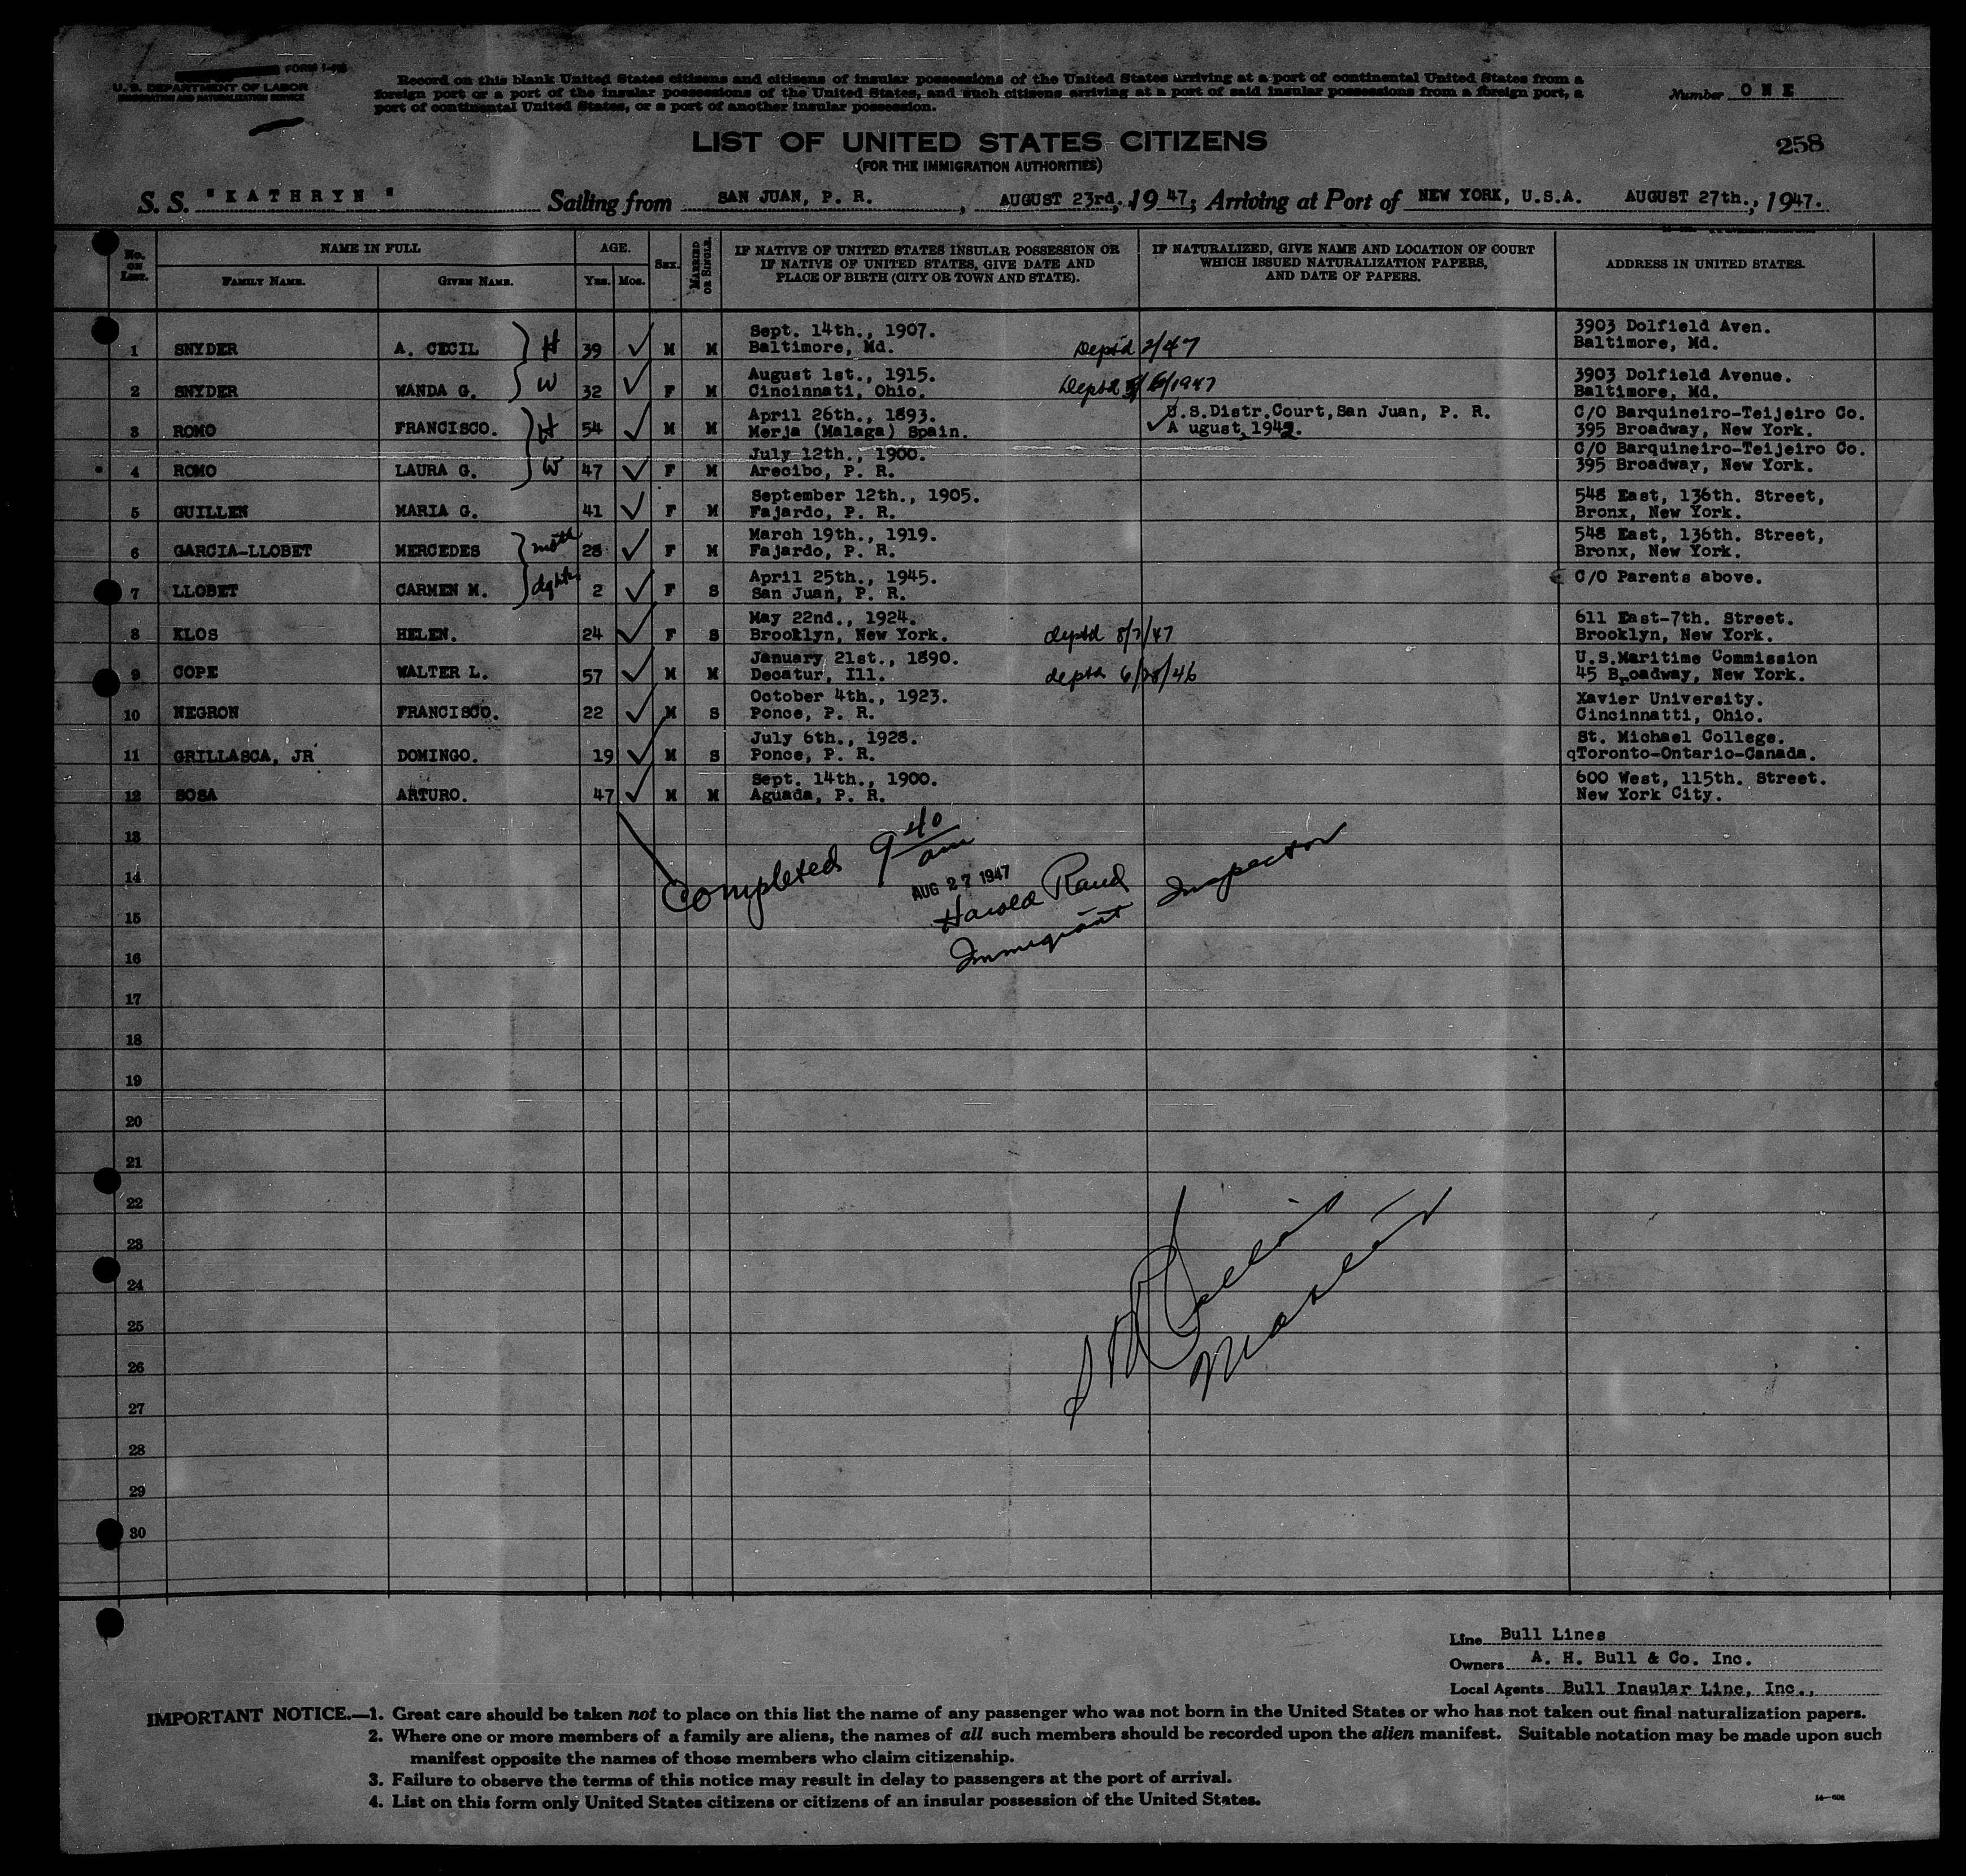 FORM I-
U. S. DEPARTMENT OF LABOR
IMMIGRATION AND NATURALIZATION SERVICE
Record on this blank United States citizens and citizens of insular possessions of the United States arriving at a port of continental United States from a
foreign port or a port of the insular possessions of the United States, and such citizens arriving at a port of said insular possessions from a foreign port, a
port of continental United States, or a port of another insular possession.
Number ONE
LIST OF UNITED STATES CITIZENS
(FOR THE IMMIGRATION AUTHORITIES)
258
S. S. "KATHRYN" Sailing from SAN JUAN, P. R., AUGUST 23rd., 1947; Arriving at Port of NEW YORK, U.S.A. AUGUST 27th., 1947.
No. on List. NAME IN FULL AGE. Sex. MARRIED OR SINGLE. IF NATIVE OF UNITED STATES INSULAR POSSESSION OR IF NATIVE OF UNITED STATES, GIVE DATE AND PLACE OF BIRTH (CITY OR TOWN AND STATE). IF NATURALIZED, GIVE NAME AND LOCATION OF COURT WHICH ISSUED NATURALIZATION PAPERS, AND DATE OF PAPERS. ADDRESS IN UNITED STATES.
FAMILY NAME. GIVEN NAME. Yrs. Mos.
Sept. 14th., 1907. 3903 Dolfield Aven.
1 SNYDER A. CECIL } H 39 ✓ M M Baltimore, Md. Deptd 2/47 Baltimore, Md.
August 1st., 1915. 3903 Dolfield Avenue.
2 SNYDER WANDA G. } W 32 ✓ F M Cincinnati, Ohio. Deptd 6/1947 Baltimore, Md.
April 26th., 1893. U.S.Distr.Court,San Juan, P. R. C/O Barquineiro-Teijeiro Co.
3 ROMO FRANCISCO. } H 54 ✓ M M Merja (Malaga) Spain. ✓ A ugust, 1942. 395 Broadway, New York.
July 12th., 1900. C/O Barquineiro-Teijeiro Co.
4 ROMO LAURA G. } W 47 ✓ F M Arecibo, P. R. 395 Broadway, New York.
September 12th., 1905. 548 East, 136th. Street,
5 GUILLEN MARIA G. 41 ✓ F M Fajardo, P. R. Bronx, New York.
March 19th., 1919. 548 East, 136th. Street,
6 GARCIA-LLOBET MERCEDES } moth 28 ✓ F M Fajardo, P. R. Bronx, New York.
April 25th., 1945. C/O Parents above.
7 LLOBET CARMEN M. } dghtr 2 ✓ F S San Juan, P. R.
May 22nd., 1924. 611 East-7th. Street.
8 KLOS HELEN. 24 ✓ F S Brooklyn, New York. deptd 8/7/47 Brooklyn, New York.
January 21st., 1890. U.S.Maritime Commission
9 COPE WALTER L. 57 ✓ M M Decatur, Ill. deptd 6/28/46 45 Broadway, New York.
October 4th., 1923. Xavier University.
10 NEGRON FRANCISCO. 22 ✓ M S Ponce, P. R. Cincinnatti, Ohio.
July 6th., 1928. St. Michael College.
11 GRILLASCA, JR DOMINGO. 19 ✓ M S Ponce, P. R. qToronto-Ontario-Canada.
Sept. 14th., 1900. 600 West, 115th. Street.
12 SOSA ARTURO. 47 ✓ M M Aguada, P. R. New York City.
13
14 Completed 9 40 am
AUG 27 1947
15 Harold Rand
Immigrant Inspector
16
17
18
19
20
21
22
23
24
25 Master
26
27
28
29
30
Line Bull Lines
Owners A. H. Bull & Co. Inc.
Local Agents Bull Insular Line, Inc.,
IMPORTANT NOTICE.—1. Great care should be taken not to place on this list the name of any passenger who was not born in the United States or who has not taken out final naturalization papers.
2. Where one or more members of a family are aliens, the names of all such members should be recorded upon the alien manifest. Suitable notation may be made upon such
manifest opposite the names of those members who claim citizenship.
3. Failure to observe the terms of this notice may result in delay to passengers at the port of arrival.
4. List on this form only United States citizens or citizens of an insular possession of the United States.